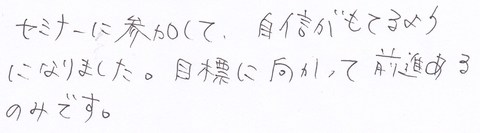 セミナーに参加して、自信がもてるよう
になりました。目標に向かって前進ある
のみです。